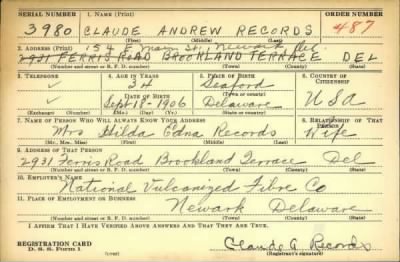 SERIAL NUMBER 1. NAME (Print) ORDER NUMBER
3980 CLAUDE ANDREW RECORDS 487
(First) (Middle) (Last)
154 E Main St., Newark Del.
2. ADDRESS (Print)
2931 FERRIS ROAD BROOKLAND TERRACE DEL
(Number and street or R. F. D. number) (Town) (County) (State)
3. TELEPHONE 4. AGE IN YEARS 5. PLACE OF BIRTH 6. COUNTRY OF CITIZENSHIP
34 Seaford
DATE OF BIRTH (Town or county)
Sept-18-1906 Delaware USA
(Exchange) (Number) (Mo.) (Day) (Yr.) (State or country)
7. NAME OF PERSON WHO WILL ALWAYS KNOW YOUR ADDRESS 8. RELATIONSHIP OF THAT PERSON
Mrs Hilda Edna Records Wife
(Mr., Mrs., Miss) (First) (Middle) (Last)
9. ADDRESS OF THAT PERSON
2931 Ferris Road Brookland Terrace Del
(Number and street or R. F. D. number) (Town) (County) (State)
10. EMPLOYER'S NAME
National Vulcanized Fibre Co
11. PLACE OF EMPLOYMENT OR BUSINESS
Newark Delaware
(Number and street or R. F. D. number) (Town) (County) (State)
I AFFIRM THAT I HAVE VERIFIED ABOVE ANSWERS AND THAT THEY ARE TRUE.
REGISTRATION CARD
D. S. S. Form 1 (over) Claude A Records
(Registrant's signature)